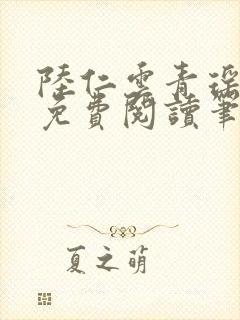 陸仁雲青瑤
免費閱讀筆
夏之萌